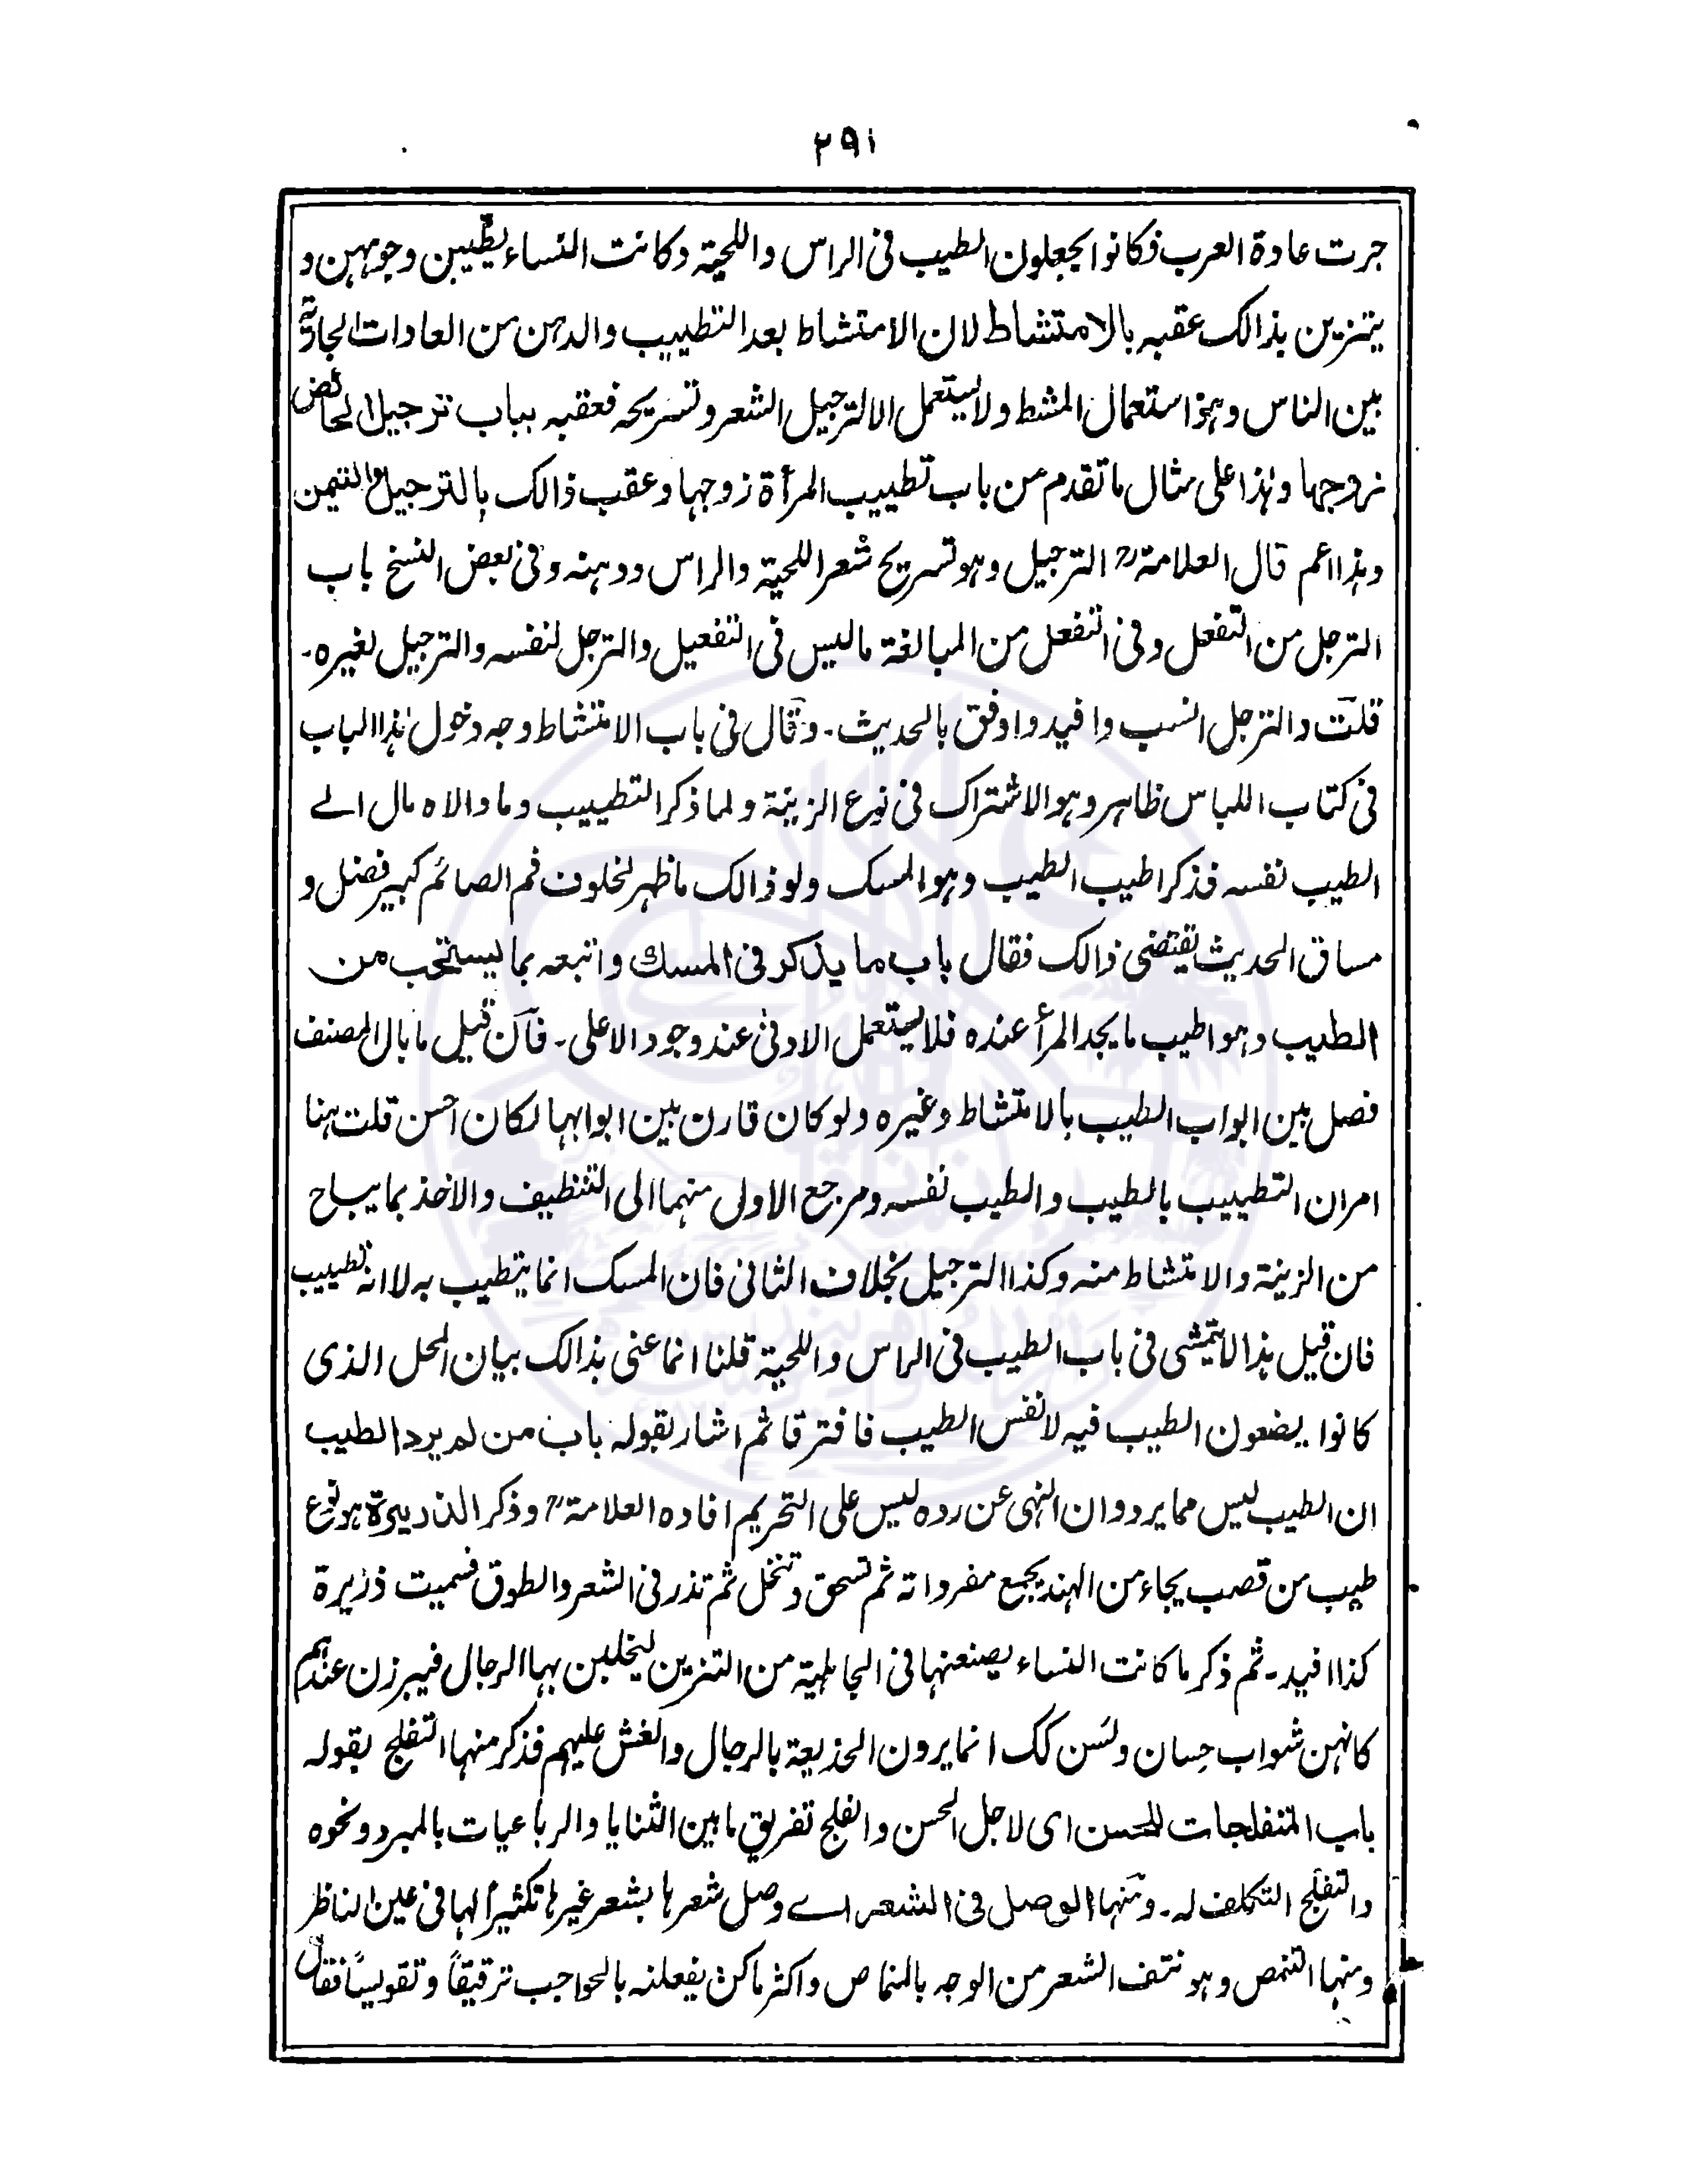 ٢٩١
جرت عادة العرب فكانوا يجعلون الطيب فى الراس واللحية وكانت النساء يطيّبن وجوههن و
يتزين بذالك عقبه بالامتشاط لان الامتشاط بعد التطييب والدهن من العادات الجارية
بين الناس وهو استعمال المشط ولا يستعمل الا لترجيل الشعر وتسريحه فعقبه بباب ترجيل الحائض
زوجها وهذا على مثال ما تقدم من باب تطييب المرأة زوجها وعقب ذالك بالترجيل والتيمن
وهذا اعم قال العلامةؒ الترجيل وهو تسريح شعر اللحية والراس ودهنه وفى بعض النسخ باب
الترجل من التفعل وفى التفعل من المبالغة ما ليس فى التفعيل والترجل لنفسه والترجيل لغيره۔
قلت والترجل انسب وافيد واوفق بالحديث۔ وقال فى باب الامتشاط وجه دخول هذا الباب
فى كتاب اللباس ظاهر وهو الاشتراك فى نوع الزينة ولما ذكر التطييب وما والاه مال الے
الطيب نفسه فذكر اطيب الطيب وهو المسك ولو ذالك ما ظهر لخلوف فم الصائم كبير فضل و
مساق الحديث يقتضى ذالك فقال باب ما يذكر فى المسك واتبعه بما يستحب من
الطيب وهو اطيب ما يجد المرأ عنده فلا يستعمل الادنى عند وجود الاعلى۔ فآن قيل ما بال المصنف
فصل بين ابواب الطيب بالامتشاط وغيره ولو كان قارن بين ابوابها لكان احسن قلت هنا
امران التطييب بالطيب والطيب نفسه ومرجع الاولى منهما الى التنظيف والاخذ بما يباح
من الزينة والامتشاط منه وكذا الترجيل بخلاف الثانى فان المسك انما يتطيب به لا انه تطييب
فان قيل هذا لا يتمشى فى باب الطيب فى الراس واللحية قلنا انما عنى بذالك بيان المحل الذى
كانوا يضعون الطيب فيه لا نفس الطيب فافترقا ثم اشار بقوله باب من لم يرد الطيب
ان الطيب ليس مما يرد وان النهى عن رده ليس على التحريم افاده العلامةؒ وذكر الذريرة هو نوع
طيب من قصب يجاء من الهند يجمع مفرداته ثم تسحق وتنخل ثم تذر فى الشعر والطوق فسميت ذريرة
كذا افيد۔ ثم ذكر ما كانت النساء يصنعنها فى الجاهلية من التزين ليخلبن بها الرجال فيبرزن عندهم
كانهن شواب حسان ولسن كك انما يرون الخذيعة بالرجال والغش عليهم فذكر منها التفلج بقوله
باب المتفلجات للحسن اى لاجل الحسن والفلج تفريق ما بين الثنايا والرباعيات بالمبرد ونحوه
والتفلج التكلف له۔ ومنها الوصل فى الشعر اے وصل شعرها بشعر غيرها تكثيراً لها فى عين الناظر
ومنها التنمص وهو نتف الشعر من الوجه بالنماص واكثر ما كن يفعلنه بالحواجب ترقيقاً وتقويساً فقال